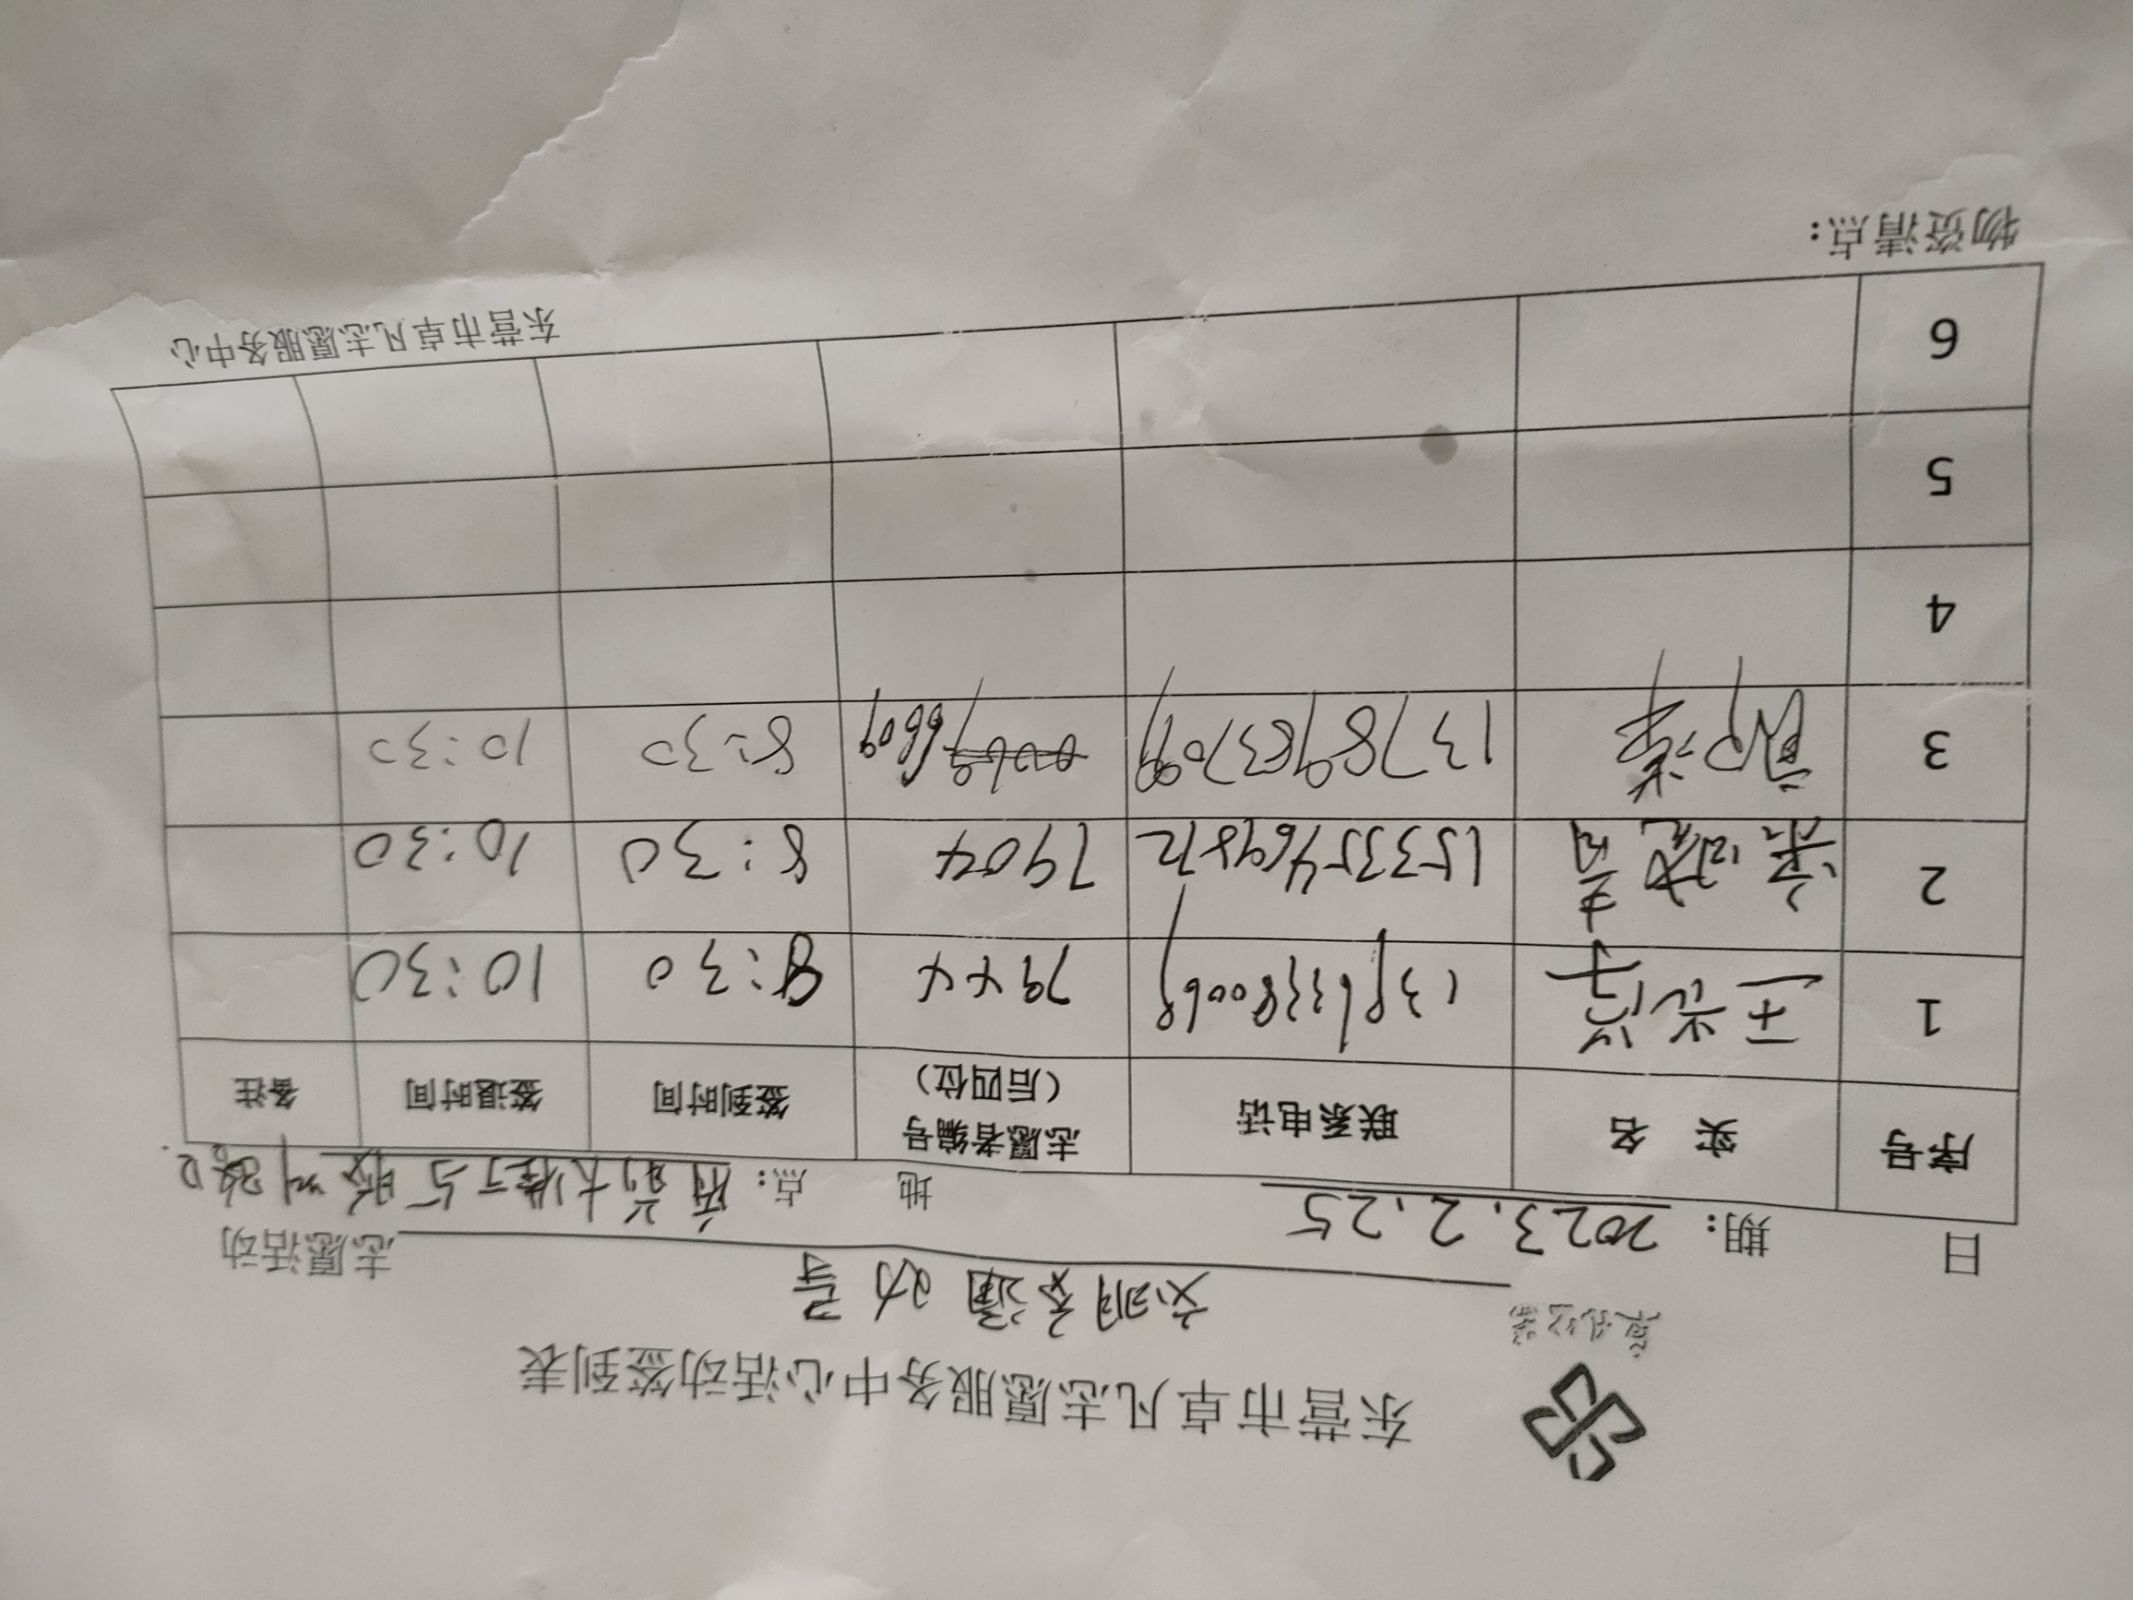 东营市卓凡志愿服务中心活动签到表
文明交通劝导 志愿活动
日 期: 2023.2.25 地 点: 府前大街与胶州路口
序号 实 名 联系电话 志愿者编号(后四位) 签到时间 签退时间 备注
1 王光俊 7944 8:30 10:30
2 梁斌青 15335469872 7904 8:30 10:30
3 13789837099 6609 8:30 10:30
4
5
6
物资清点: 东营市卓凡志愿服务中心